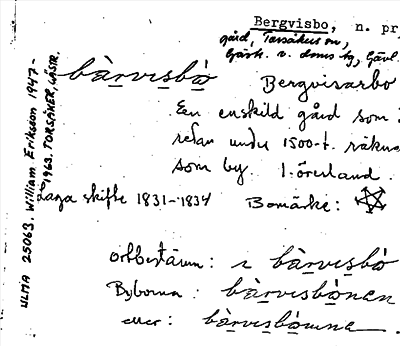 Bergvisbo, n. pr
gård, Torsåkers sn,
Gästr. ö. doms hg, Gävl
bàrvisbò Bergvisarbo
En enskild gård som
redan under 1500-t. räkna
som by. 1 öresland.
Laga skifte 1831-1834 Bomärke:
ortbestämn: i bàrvisbò
Byborna: bàrvisbònan
eller: bàrvisbòarna
ULMA 25063. William Eriksson 1947-
1963. TORSÅKER, GÄSTR.